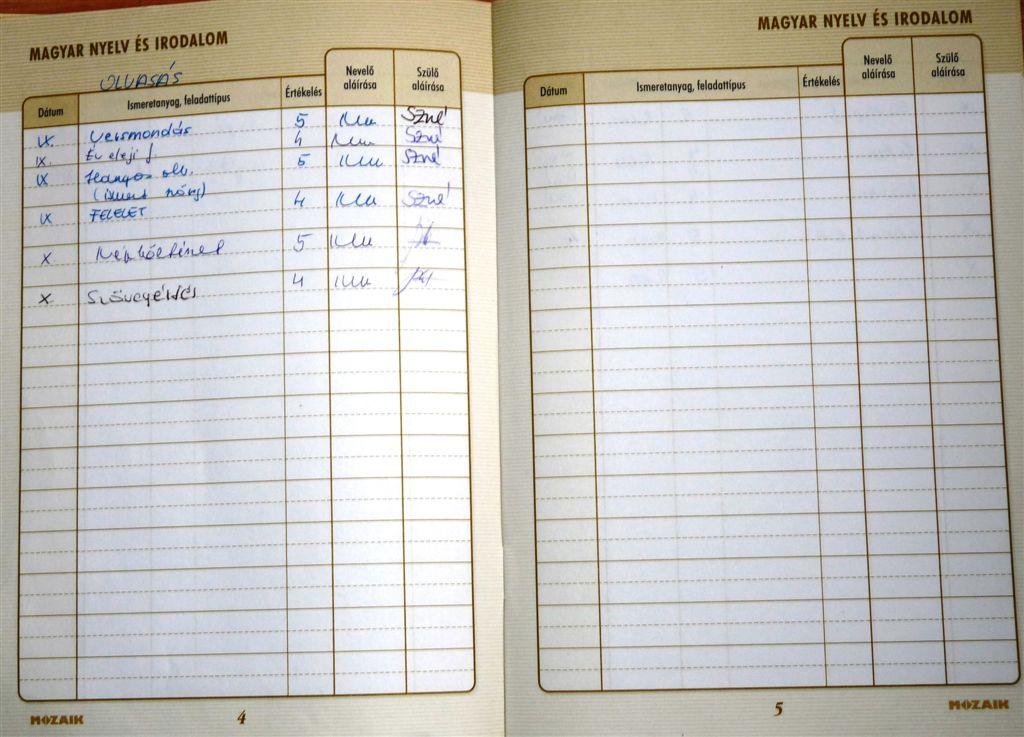 MAGYAR NYELV ÉS IRODALOM
OLVASÁS
Dátum Ismeretanyag, feladattípus Értékelés Nevelő aláírása Szülő aláírása
IX. Versmondás 5 Szné
IX. Év eleji f. 4 Szné
IX Hangos olv. 5 Szné
(ismert szöveg)
IX FELELET 4 Szné
X Népköltészet 5
X Szövegértés 4
MOZAIK 4
MAGYAR NYELV ÉS IRODALOM
Dátum Ismeretanyag, feladattípus Értékelés Nevelő aláírása Szülő aláírása
5 MOZAIK